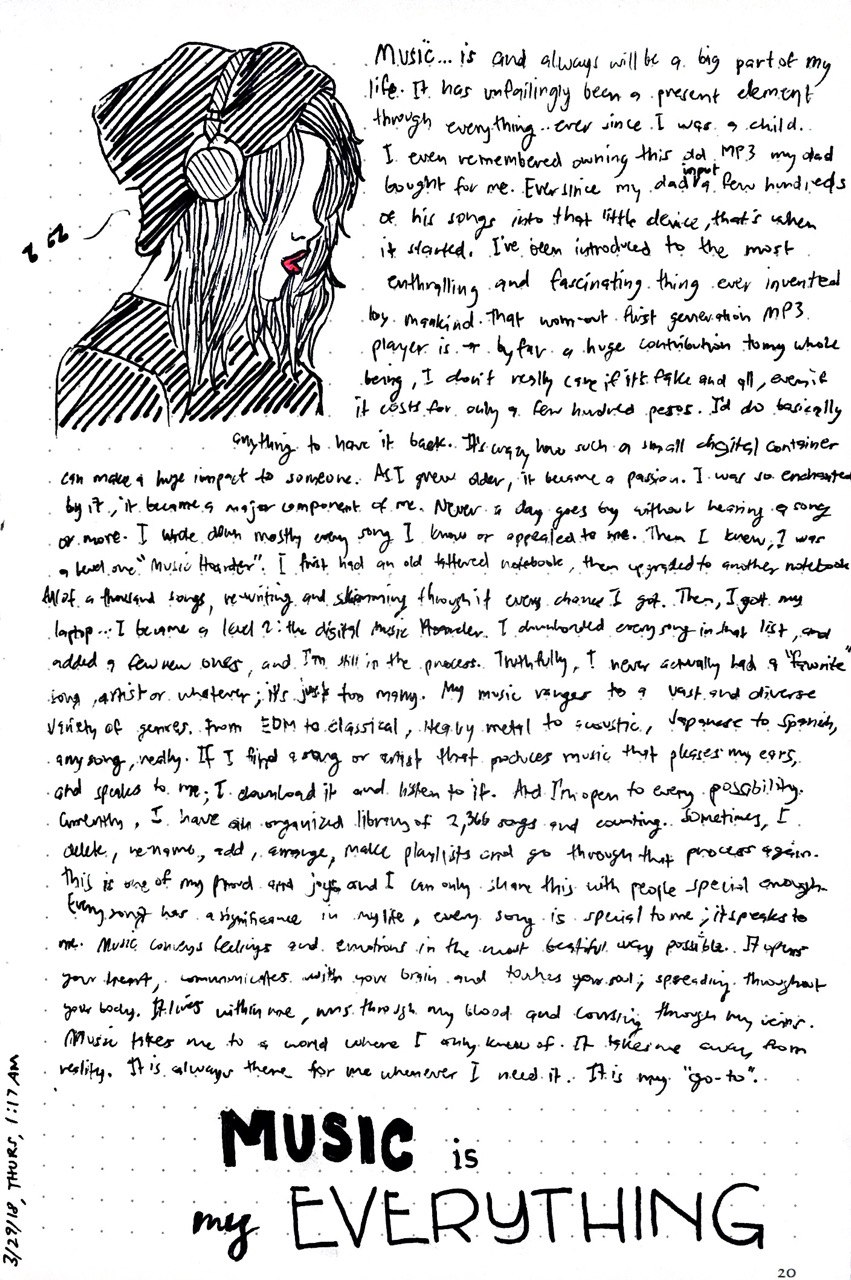 Music... is and always will be a big part of my
life. It has unfailingly been a present element
through everything ever since I was a child.
I even remembered owning this old MP3 my dad
bought for me. Ever since my dad input a few hundreds
of his songs into that little device, that's when
it started. I've been introduced to the most
enthralling and fascinating thing ever invented
by mankind. That worn-out first generation MP3
player is by far a huge contribution to my whole
being, I don't really care if it's fake and all, even if
it costs for only a few hundred pesos. I'd do basically
anything to have it back. It's crazy how such a small digital container
can make a huge impact to someone. As I grew older, it became a passion. I was so enchanted
by it, it became a major component of me. Never a day goes by without hearing a song
or more. I wrote down mostly every song I know or appealed to me. Then I knew, I was
a level one "Music Hoarder". I first had an old tattered notebook, then upgraded to another notebook
full of a thousand songs, re-writing and skimming through it every chance I got. Then, I got my
laptop... I became a level 2: the digital Music Hoarder. I downloaded every song in that list, and
added a few new ones, and I'm still in the process. Truthfully, I never actually had a "favorite"
song, artist or whatever; it's just too many. My music ranges to a vast and diverse
variety of genres. From EDM to classical, heavy metal to acoustic, Japanese to Spanish,
any song, really. If I find a song or artist that produces music that pleases my ears,
and speaks to me; I download it and listen to it. And I'm open to every possibility.
Currently, I have an organized library of 2,366 songs and counting. Sometimes, I
delete, re-name, add, arrange, make playlists and go through that process again.
This is one of my proud and joys and I can only share this with people special enough.
Every song has a significance in my life, every song is special to me; it speaks to
me. Music conveys feelings and emotions in the most beatiful way possible. It opens
your heart, communicates with your brain and touches your soul; spreading throughout
your body. It lives within me, runs through my blood and coursing through my veins.
Music takes me to a world where I only knew of. It takes me away from
reality. It is always there for me whenever I need it. It is my "go-to".
MUSIC is
my EVERYTHING
3/29/18, THURS, 1:17 AM
20